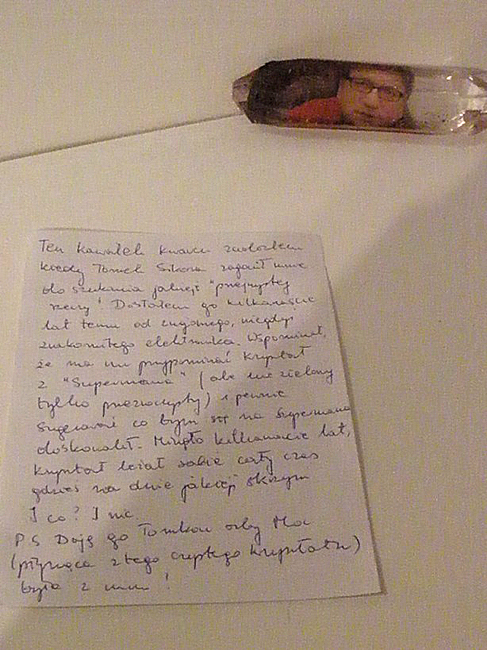 Ten kawałek kwarcu znalazłem
kiedy Tomek Sikora zagaił mnie
do szukania jakiejś "przejrzystej
rzeczy". Dostałem go kilkanaście
lat temu od znajomego, niegdyś
znakomitego elektronika. Wspominał,
że ma mi przypominać kryształ
z "Supermana" (ale nie zielony
tylko przezroczysty) i pewnie
sugerował co bym się na supermana
doskonalił. Minęło kilkanaście lat,
kryształ leżał sobie cały czas
gdzieś na dnie jakiejś skrzyni
I co? I nic.
PS Daję go Tomkowi oby Moc
(płynąca z tego ciepłego kryształu)
była z nim!